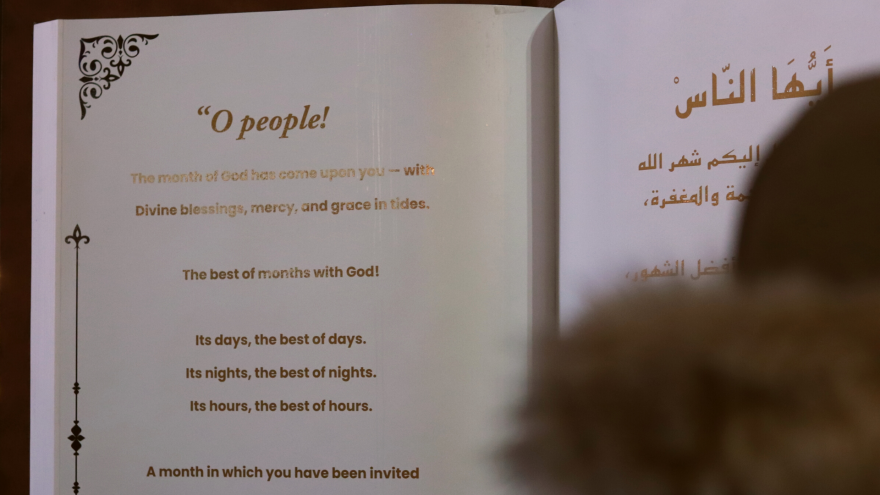 “O people!
The month of God has come upon you — with
Divine blessings, mercy, and grace in tides.
The best of months with God!
Its days, the best of days.
Its nights, the best of nights.
Its hours, the best of hours.
A month in which you have been invited
أَيُّهَا النّاسْ
إليكم شهر الله
والمغفرة،
أفضل الشهور،